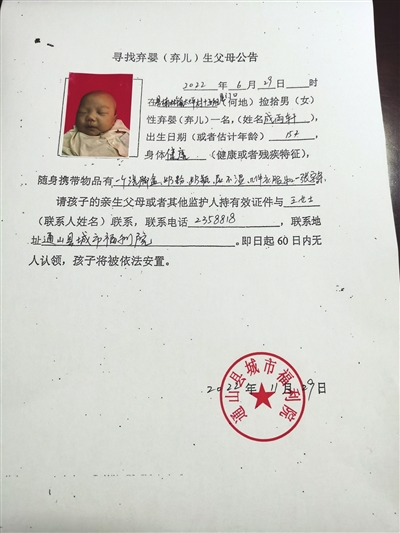 寻找弃婴（弃儿）生父母公告
2022 年 6 月 29 日 时
在 何地）捡拾男（女）
性弃婴（弃儿）一名，（姓名 ），
出生日期（或者估计年龄） ，
身体 健康 （健康或者残疾特征），
随身携带物品有 一个洗脚盆、奶粉、奶瓶、尿不湿、
请孩子的亲生父母或者其他监护人持有效证件与 王女士
（联系人姓名）联系，联系电话 2358818 ，联系地
址 通山县城市福利院 。即日起 60 日内无
人认领，孩子将被依法安置。
通山县城市福利院
2022 年 11 月 29 日